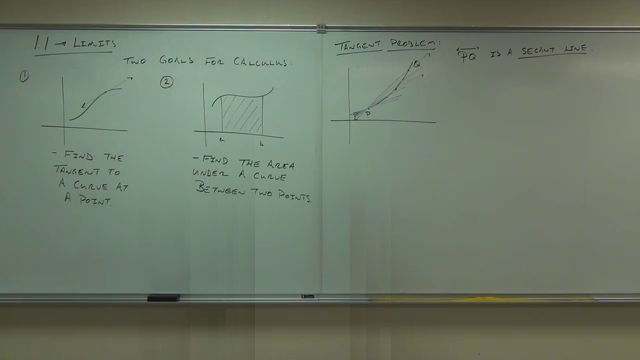 1.1 → LIMITS
TWO GOALS FOR CALCULUS:
①
②
a b
- FIND THE
TANGENT TO
A CURVE AT
A POINT.
- FIND THE AREA
UNDER A CURVE
BETWEEN TWO POINTS
TANGENT PROBLEM:
Q
P
PQ IS A SECANT LINE.